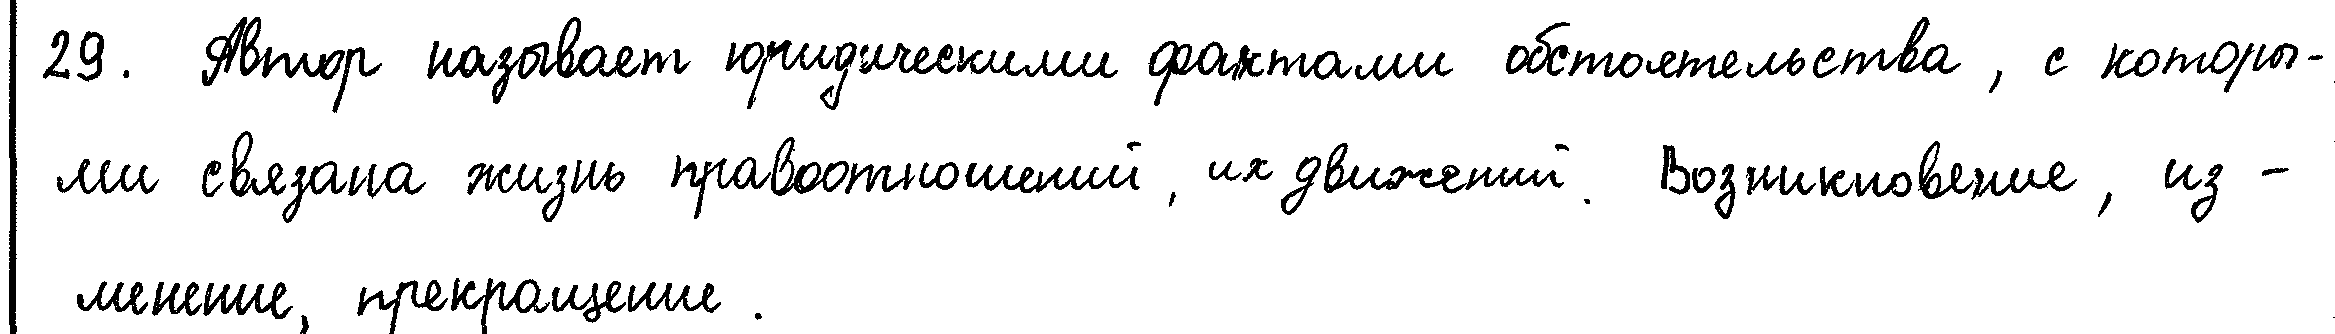 29. Автор называет юридическими фактами обстоятельства, с которы-
ми связана жизнь правоотношений, их движений. Возникновение, из-
менение, прекращение.